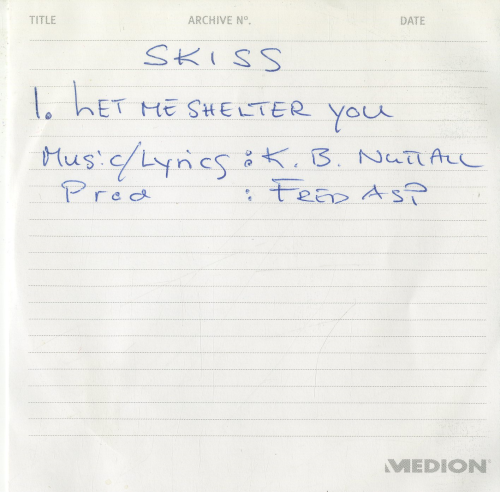 TITLE ARCHIVE Nº. DATE
SKISS
1. LET ME SHELTER YOU
Music/Lyrics : K. B. NUTTALL
Prod : FRED ASP
MEDION